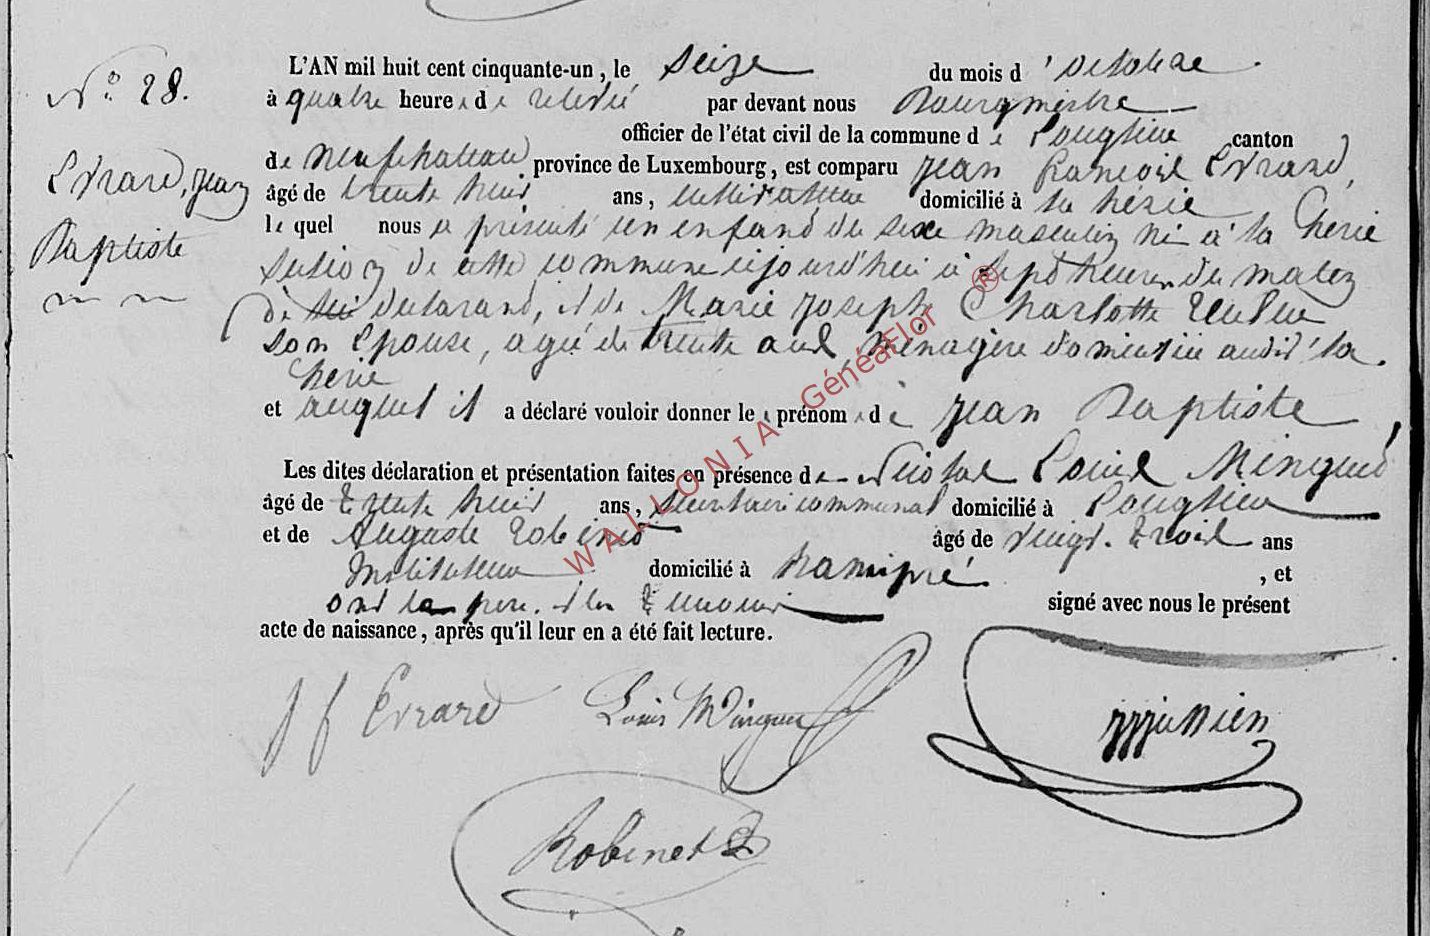 N° 28.
Evrard, jean
Baptiste
L'AN mil huit cent cinquante-un, le seize du mois d'octobre
à quatre heures de relevé par devant nous Bourgmestre
officier de l'état civil de la commune de Longlier canton
de Neufchateau province de Luxembourg, est comparu jean francois Evrard,
âgé de trente huit ans, cultivateur domicilié à la hérie
lequel nous a présenté un enfant du sexe masculin né à la Cherie
section de cette commune cejourd'hui à sept heures du matin
de lui déclarant, et de Marie joseph Charlotte
son Epouse, agée de trente ans, ménagère domiciliée audit la
Cherie
et auquel il a déclaré vouloir donner les prénoms de jean Baptiste
Les dites déclaration et présentation faites en présence de Nicolas Louis Minguet
âgé de trente huit ans, secretaire communal domicilié à Longlier
et de Auguste Robinet âgé de vingt-trois ans
Instituteur domicilié à hamipré , et
ont le père et les témoins signé avec nous le présent
acte de naissance, après qu'il leur en a été fait lecture.
j f Evrard Louis Minguet
Robinet
WALLONIA GénéaFlor ®